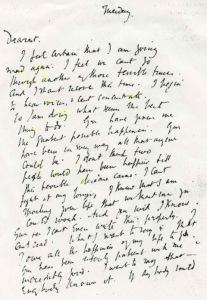 Tuesday.
Dearest,
I feel certain that I am going
mad again. I feel we can't go
through another of those terrible times.
And I shant recover this time. I begin
to hear voices, & cant concentrate.
So I am doing what seems the best
thing to do. You have given me
the greatest possible happiness. You
have been in every way all that anyone
could be. I dont think two
people could have been happier till
this terrible disease came. I cant
fight it any longer, I know that I am
spoiling your life, that without me you
could work. And you will I know.
You see I cant even write this properly. I
cant read. What I want to say is that
I owe all the happiness of my life to you.
You have been entirely patient with me &
incredibly good. I want to say that —
everybody knows it. If anybody could